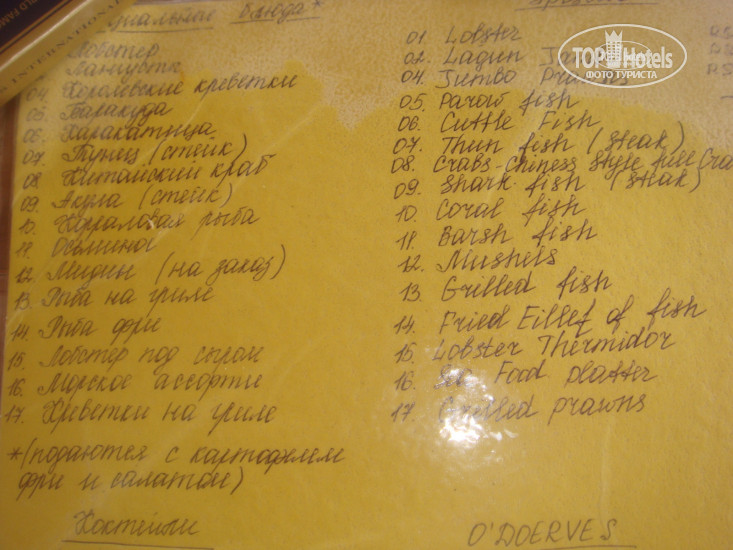 блюда*
Лобстер
Лангусты
04. Королевские креветки
05. Баракуда
06. Каракатица
07. Тунец (стейк)
08. Китайский краб
09. Акула (стейк)
10. Корраловая рыба
11. Осьминог
12. Мидии (на заказ)
13. Рыба на гриле
14. Рыба фри
15. Лобстер под сыром
16. Морское ассорти
17. Креветки на гриле
*(подаются с картофелем
фри и салатом)
Коктейли
01 Lobster
02. Lagun
04. Jumbo
05. Parow fish
06. Cuttle Fish
07. Thun fish (steak)
08. Crabs-Chiness style fille Cra
09. Shark fish (steak)
10. Coral fish
11. Barsh fish
12. Mushels
13. Grilled fish
14. Fried Fillet of fish
15. Lobster Thermidor
16. Sea Food platter
17. Grilled prawns
O'DOERVES
TOP Hotels
ФОТО ТУРИСТА
INTERNATIONAL